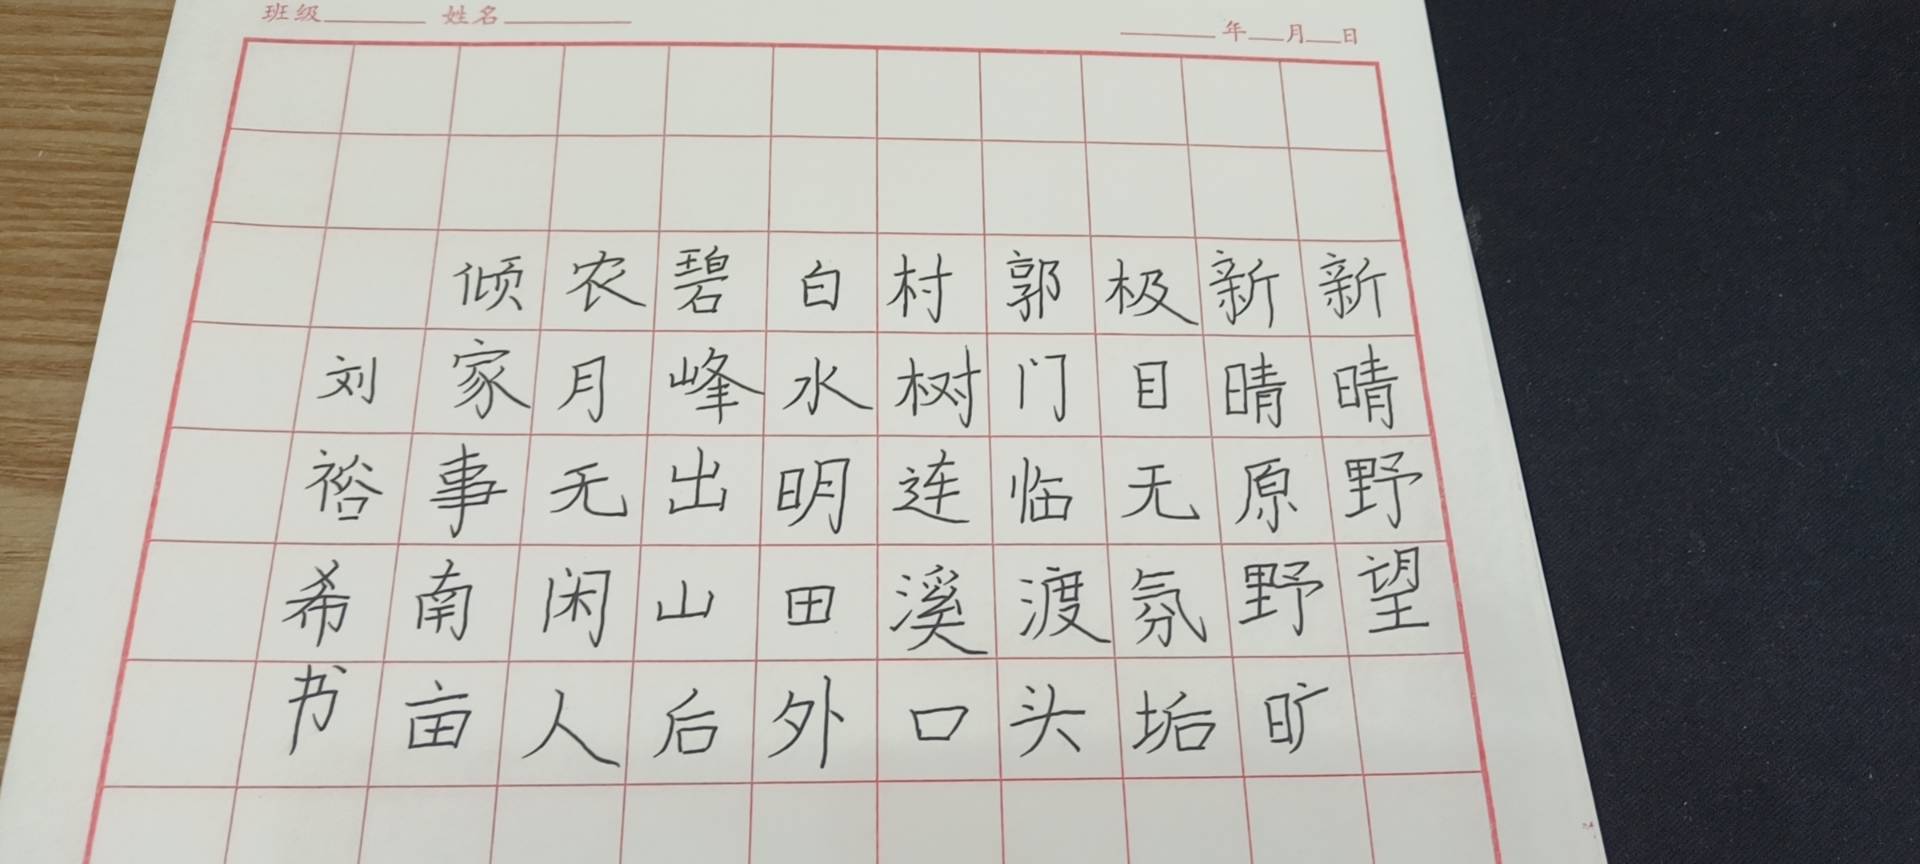 班级 姓名
年 月 日
新晴野望
新晴原野旷
极目无氛垢
郭门临渡头
村树连溪口
白水明田外
碧峰出山后
农月无闲人
倾家事南亩
刘裕希书